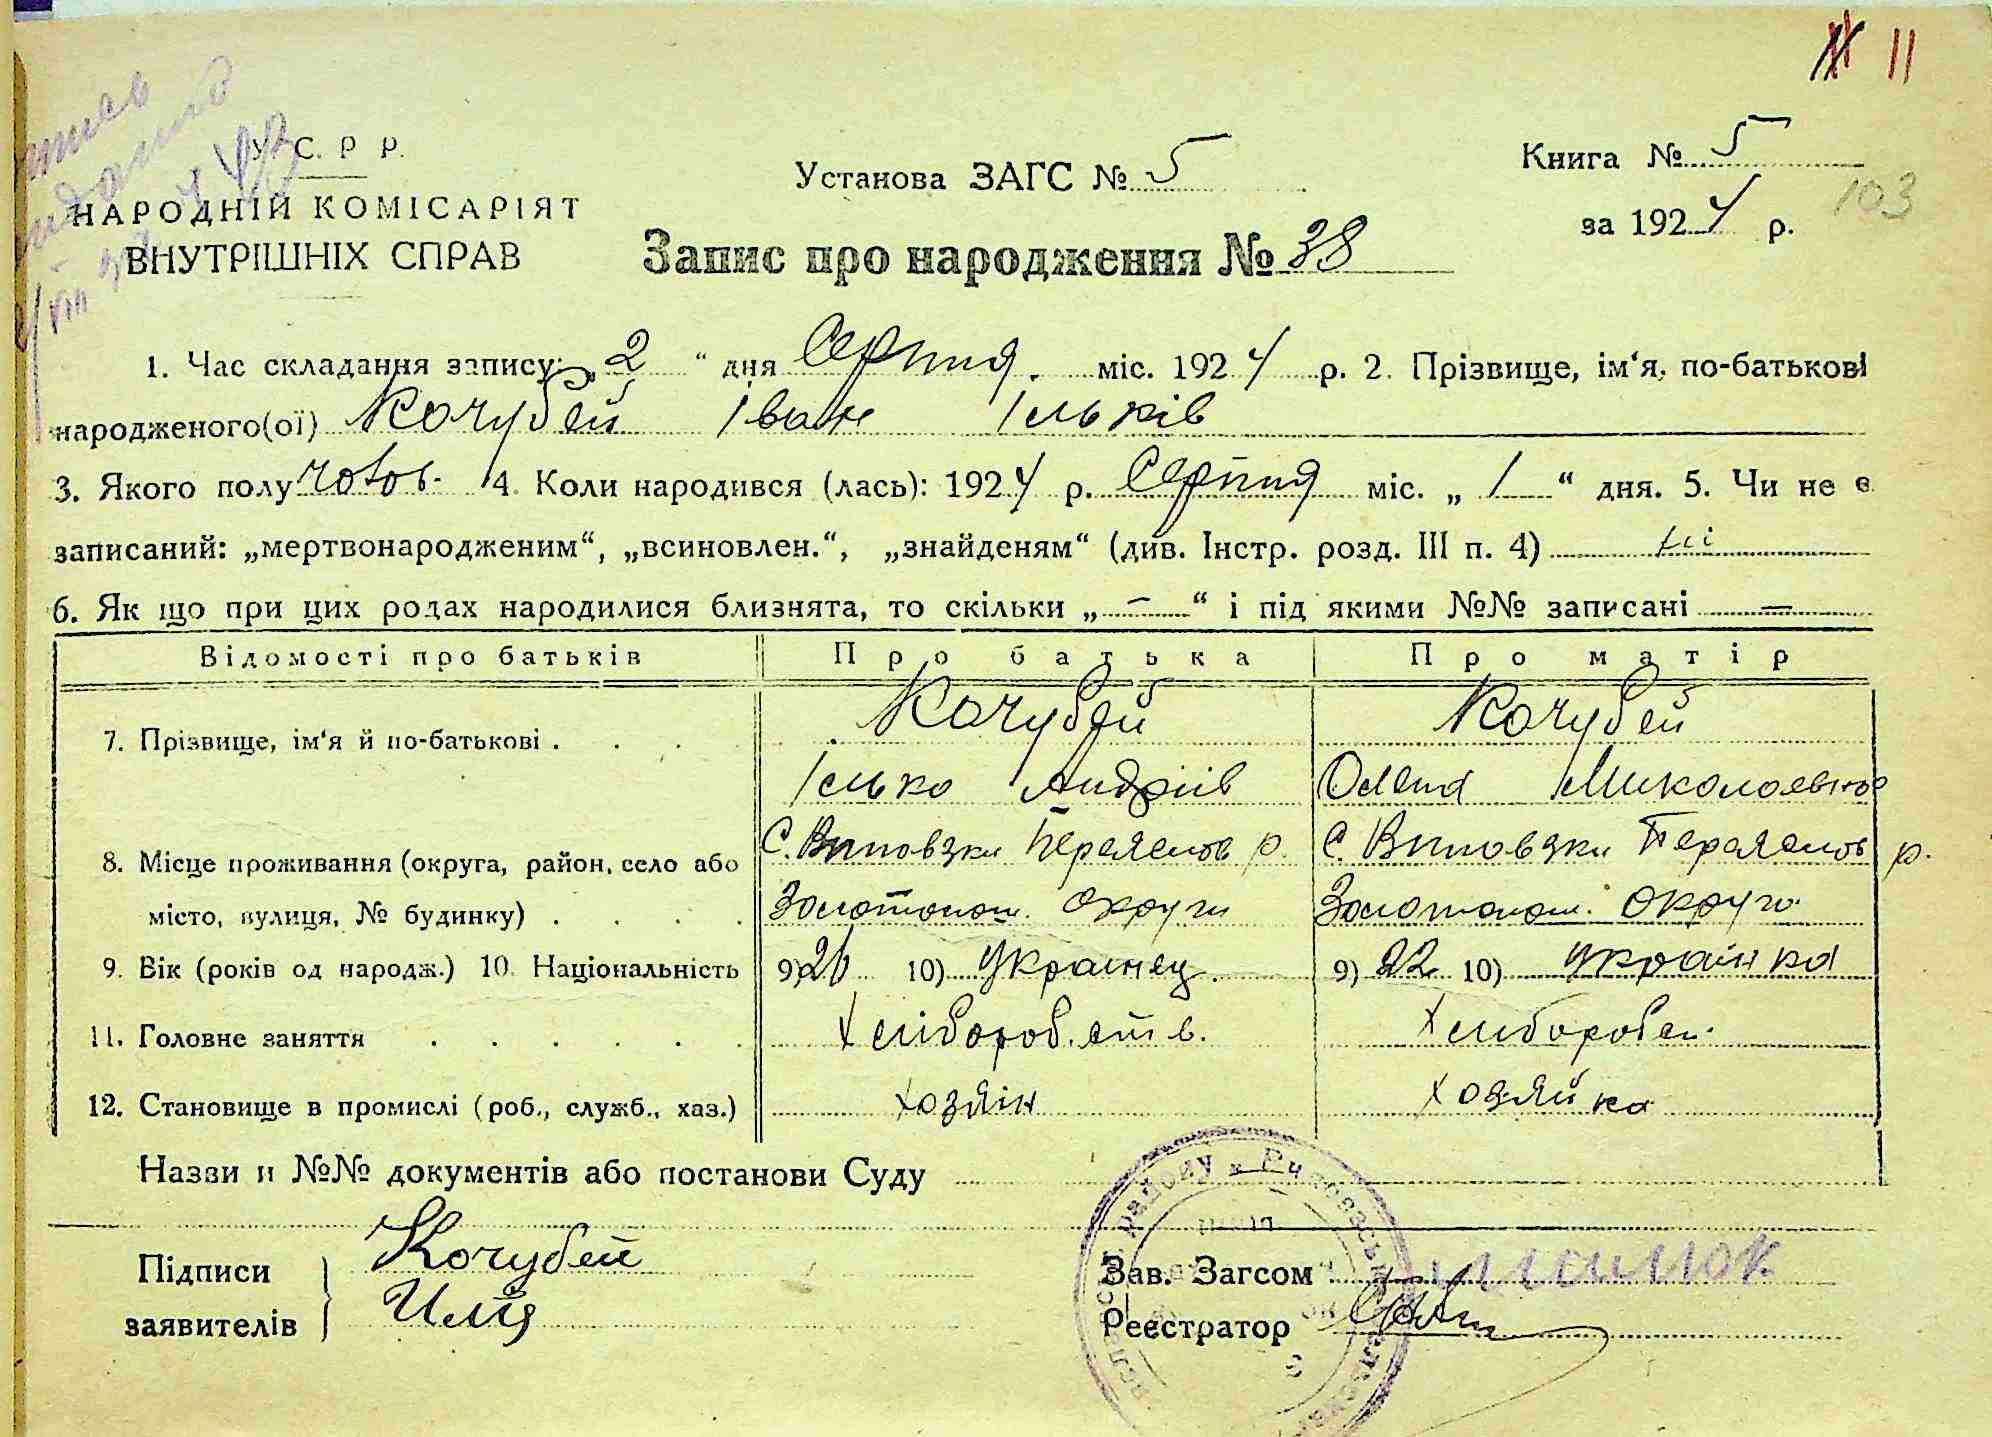 11
У. С. Р Р.
НАРОДНІЙ КОМІСАРІЯТ
ВНУТРІШНІХ СПРАВ
Установа ЗАГС № 5
Книга № 5
за 1924 р.
103
Запис про народження № 38
1. Час складання запису: „2“ дня Серпня міс. 1924 р. 2. Прізвище, ім'я, по-батькові
народженого(ої) Кочубей Іван Ільків
3. Якого полу чолов. 4. Коли народився (лась): 1924 р. Серпня міс. „1“ дня. 5. Чи не є
записаний: „мертвонародженим“, „всиновлен.“, „знайденям“ (див. Інстр. розд. III п. 4) ні
6. Як що при цих родах народилися близнята, то скільки „—“ і під якими №№ записані —
Відомості про батьків Про батька Про матір
7. Прізвище, ім'я й по-батькові . . . . Кочубей Кочубей
Ілько Андріїв Олена Миколаєвна
8. Місце проживання (округа, район, село або С. Виповзки Переяслов р. С. Виповзки Переяслов р.
місто, вулиця, № будинку) . . . . Золотонош. округи Золотонош. округи
9. Вік (років од народж.) 10. Національність 9) 26 10) Украінец 9) 22 10) Украінка
11. Головне заняття . . . . . . Хлібороб.ств. Хлібороб
12. Становище в промислі (роб., служб., хаз.) хозяін хозяйка
Назви й №№ документів або постанови Суду
Підписи
заявителів
Кочубей
Илія
Зав. Загсом
Реєстратор